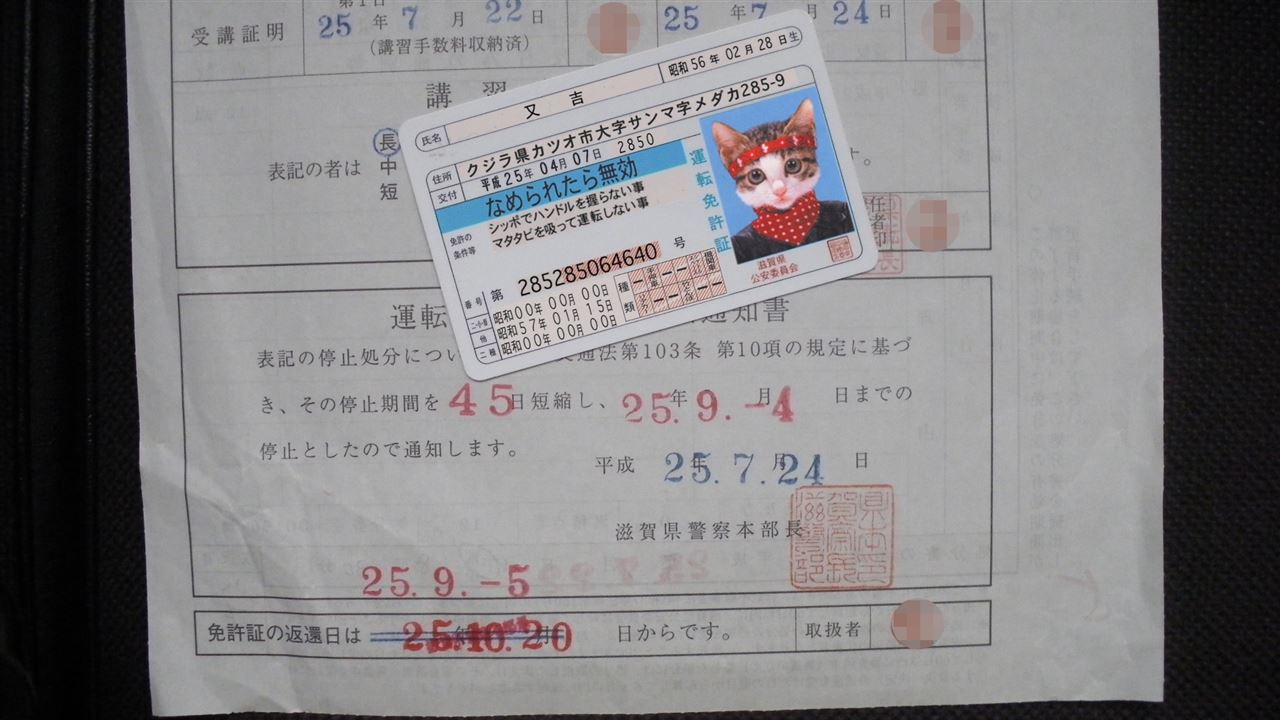 第1日
受講証明
25年7月22日
25年7月24日
(講習手数料収納済)
講習
表記の者は
長
中
短
す。
任者印
氏名
又吉
昭和56年02月28日生
住所
クジラ県カツオ市大字サンマ字メダカ285-9
交付
平成25年04月07日 2850
なめられたら無効
免許の条件等
シッポでハンドルを握らない事
マタタビを吸って運転しない事
運転免許証
番号
第 285285064640 号
二・小・原
昭和00年00月00日
他
昭和57年01月15日
二種
昭和00年00月00日
種類
滋賀県
公安委員会
運転
通知書
表記の停止処分につい
交通法第103条 第10項の規定に基づ
き、その停止期間を45日短縮し、25年9.-月4日までの
停止としたので通知します。
平成 25年7.月24日
滋賀県警察本部長
25.9.-5
免許証の返還日は 25.10.20 日からです。
取扱者